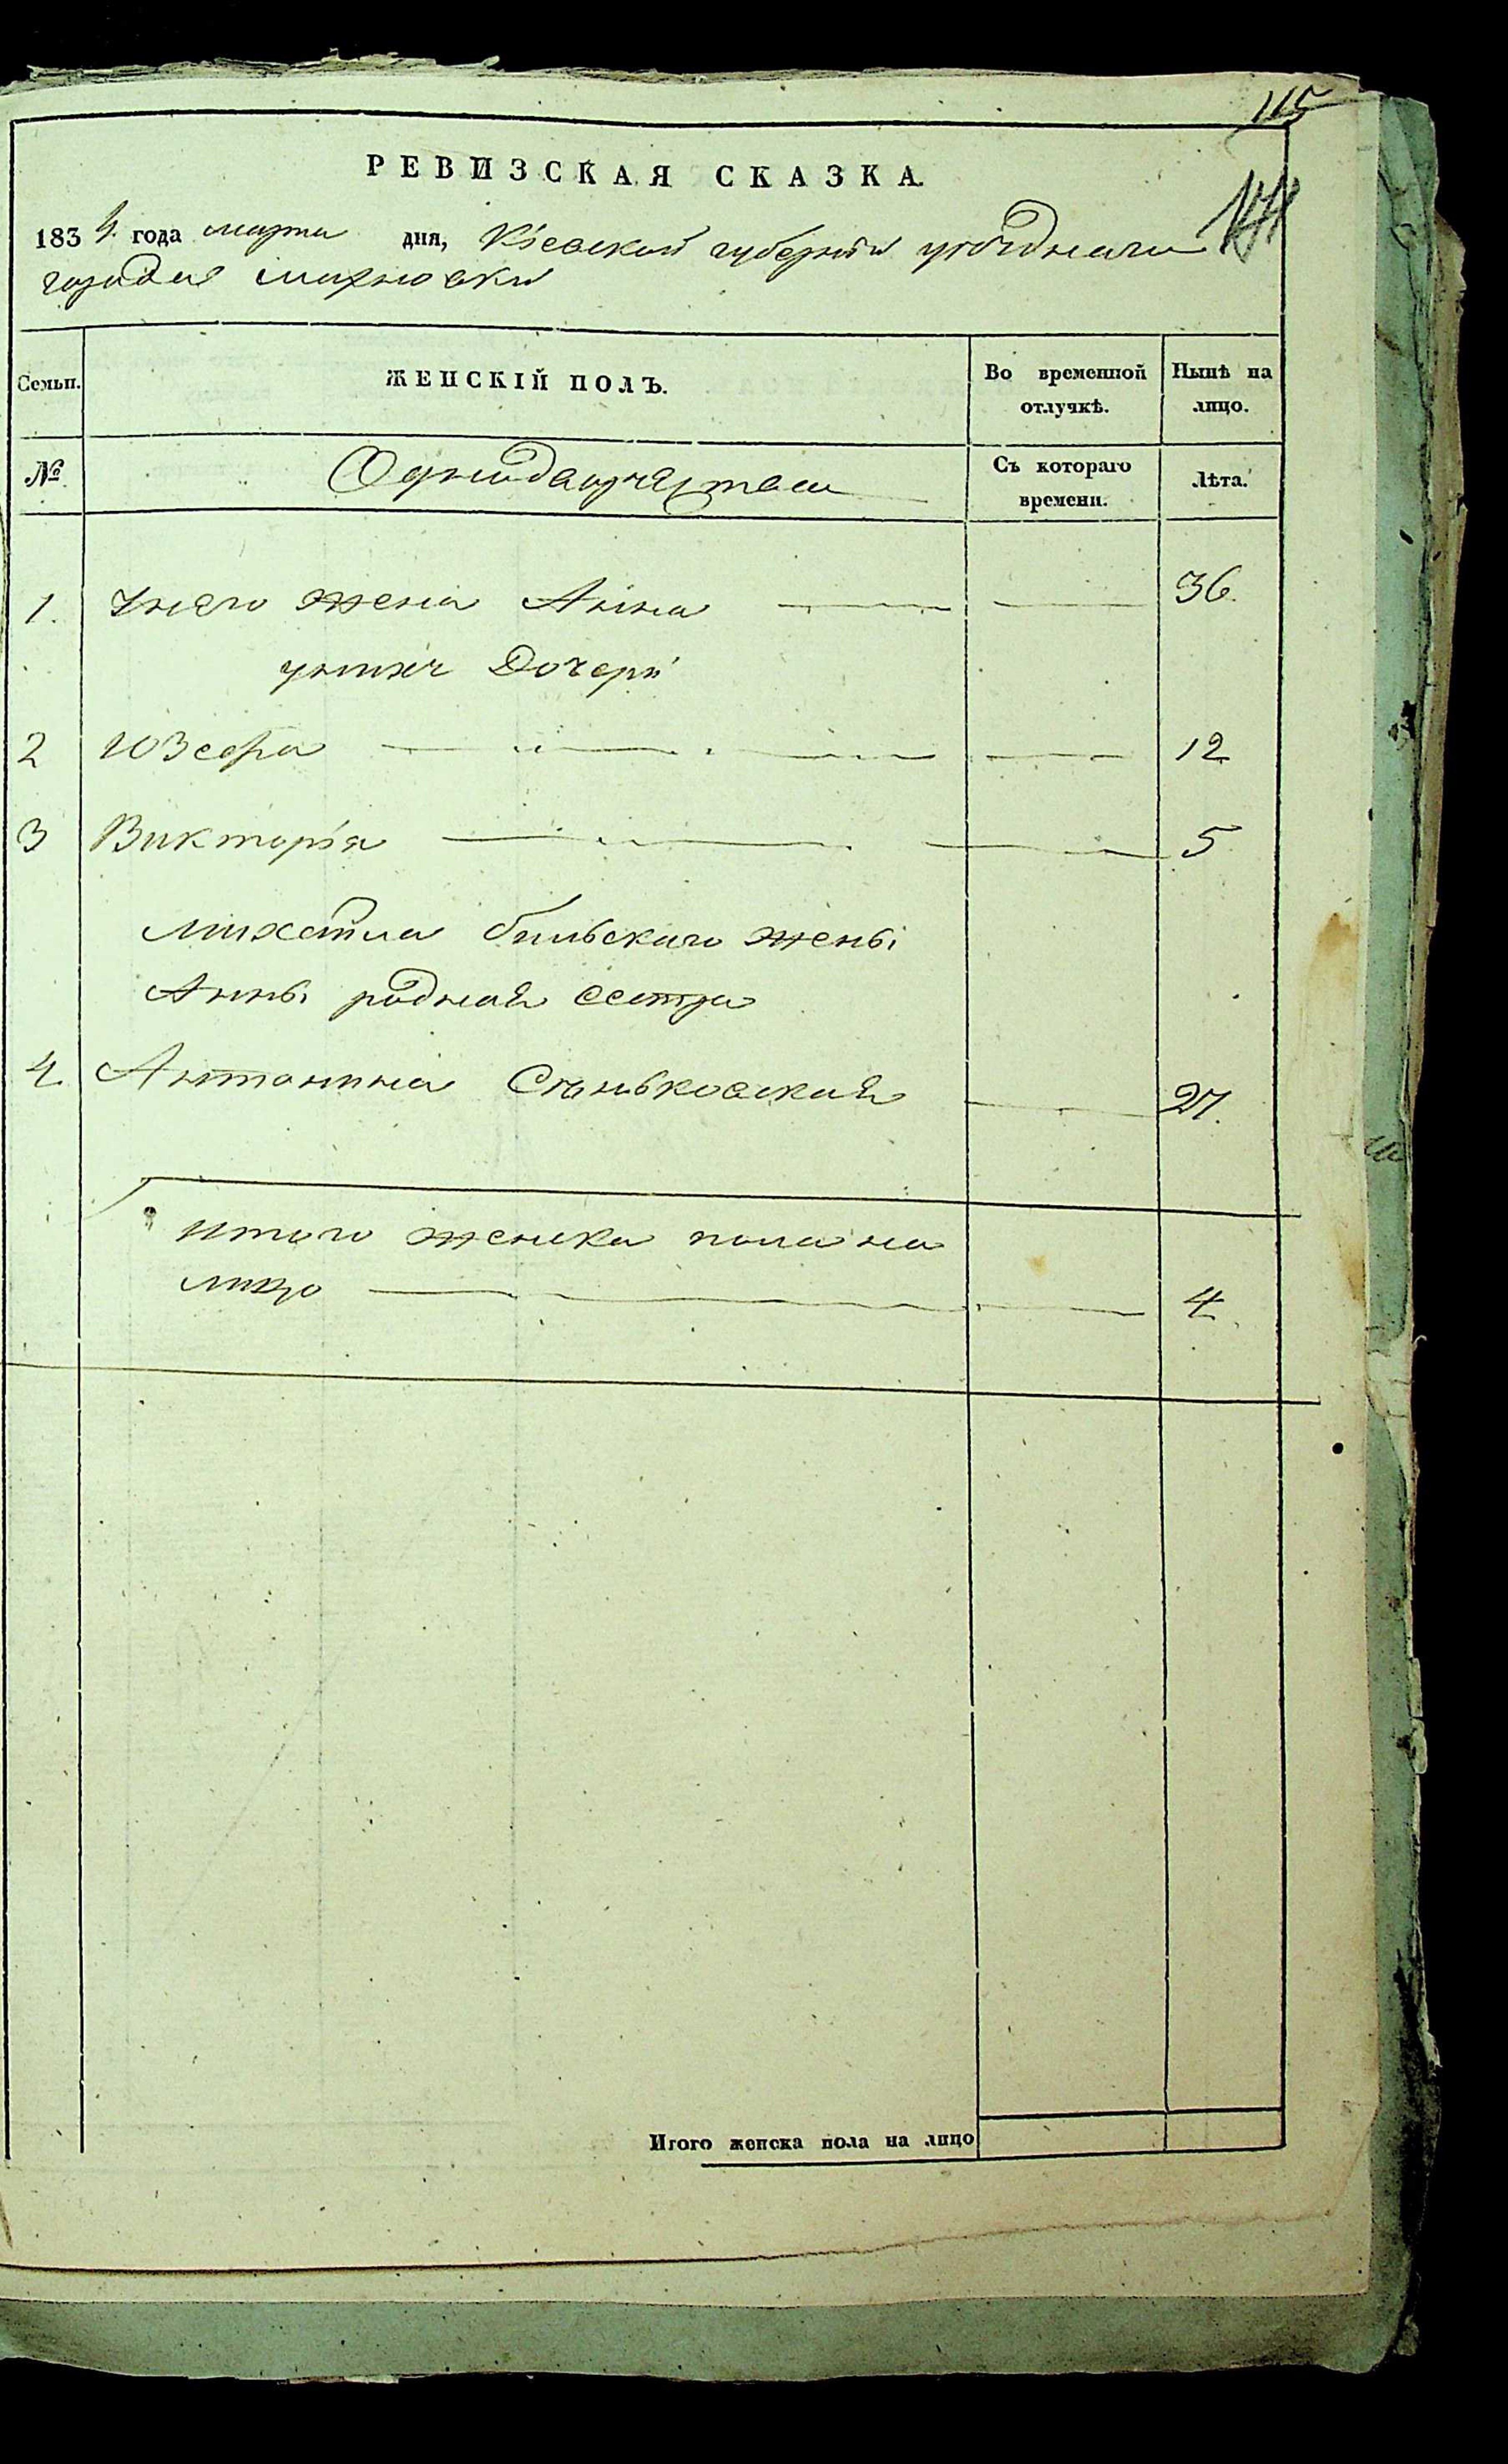 115
РЕВИЗСКАЯ СКАЗКА.
1834 года марта дня, Кіевской губерніи уѣзднаго
города Махновки
Семьи. ЖЕНСКІЙ ПОЛЪ. Во временной отлучкѣ. Нынѣ на лицо.
№ Съ котораго времени. Лѣта.
1. Унего жена Анна 36.
уныхъ Дочери
2 Юзефа 12
3 Викторія 5
Михаила бѣльскаго жены
Анны родная сестра
4. Антонина Сѣньковская 27.
итого женска пола на
лицо 4
Итого женска пола на лицо